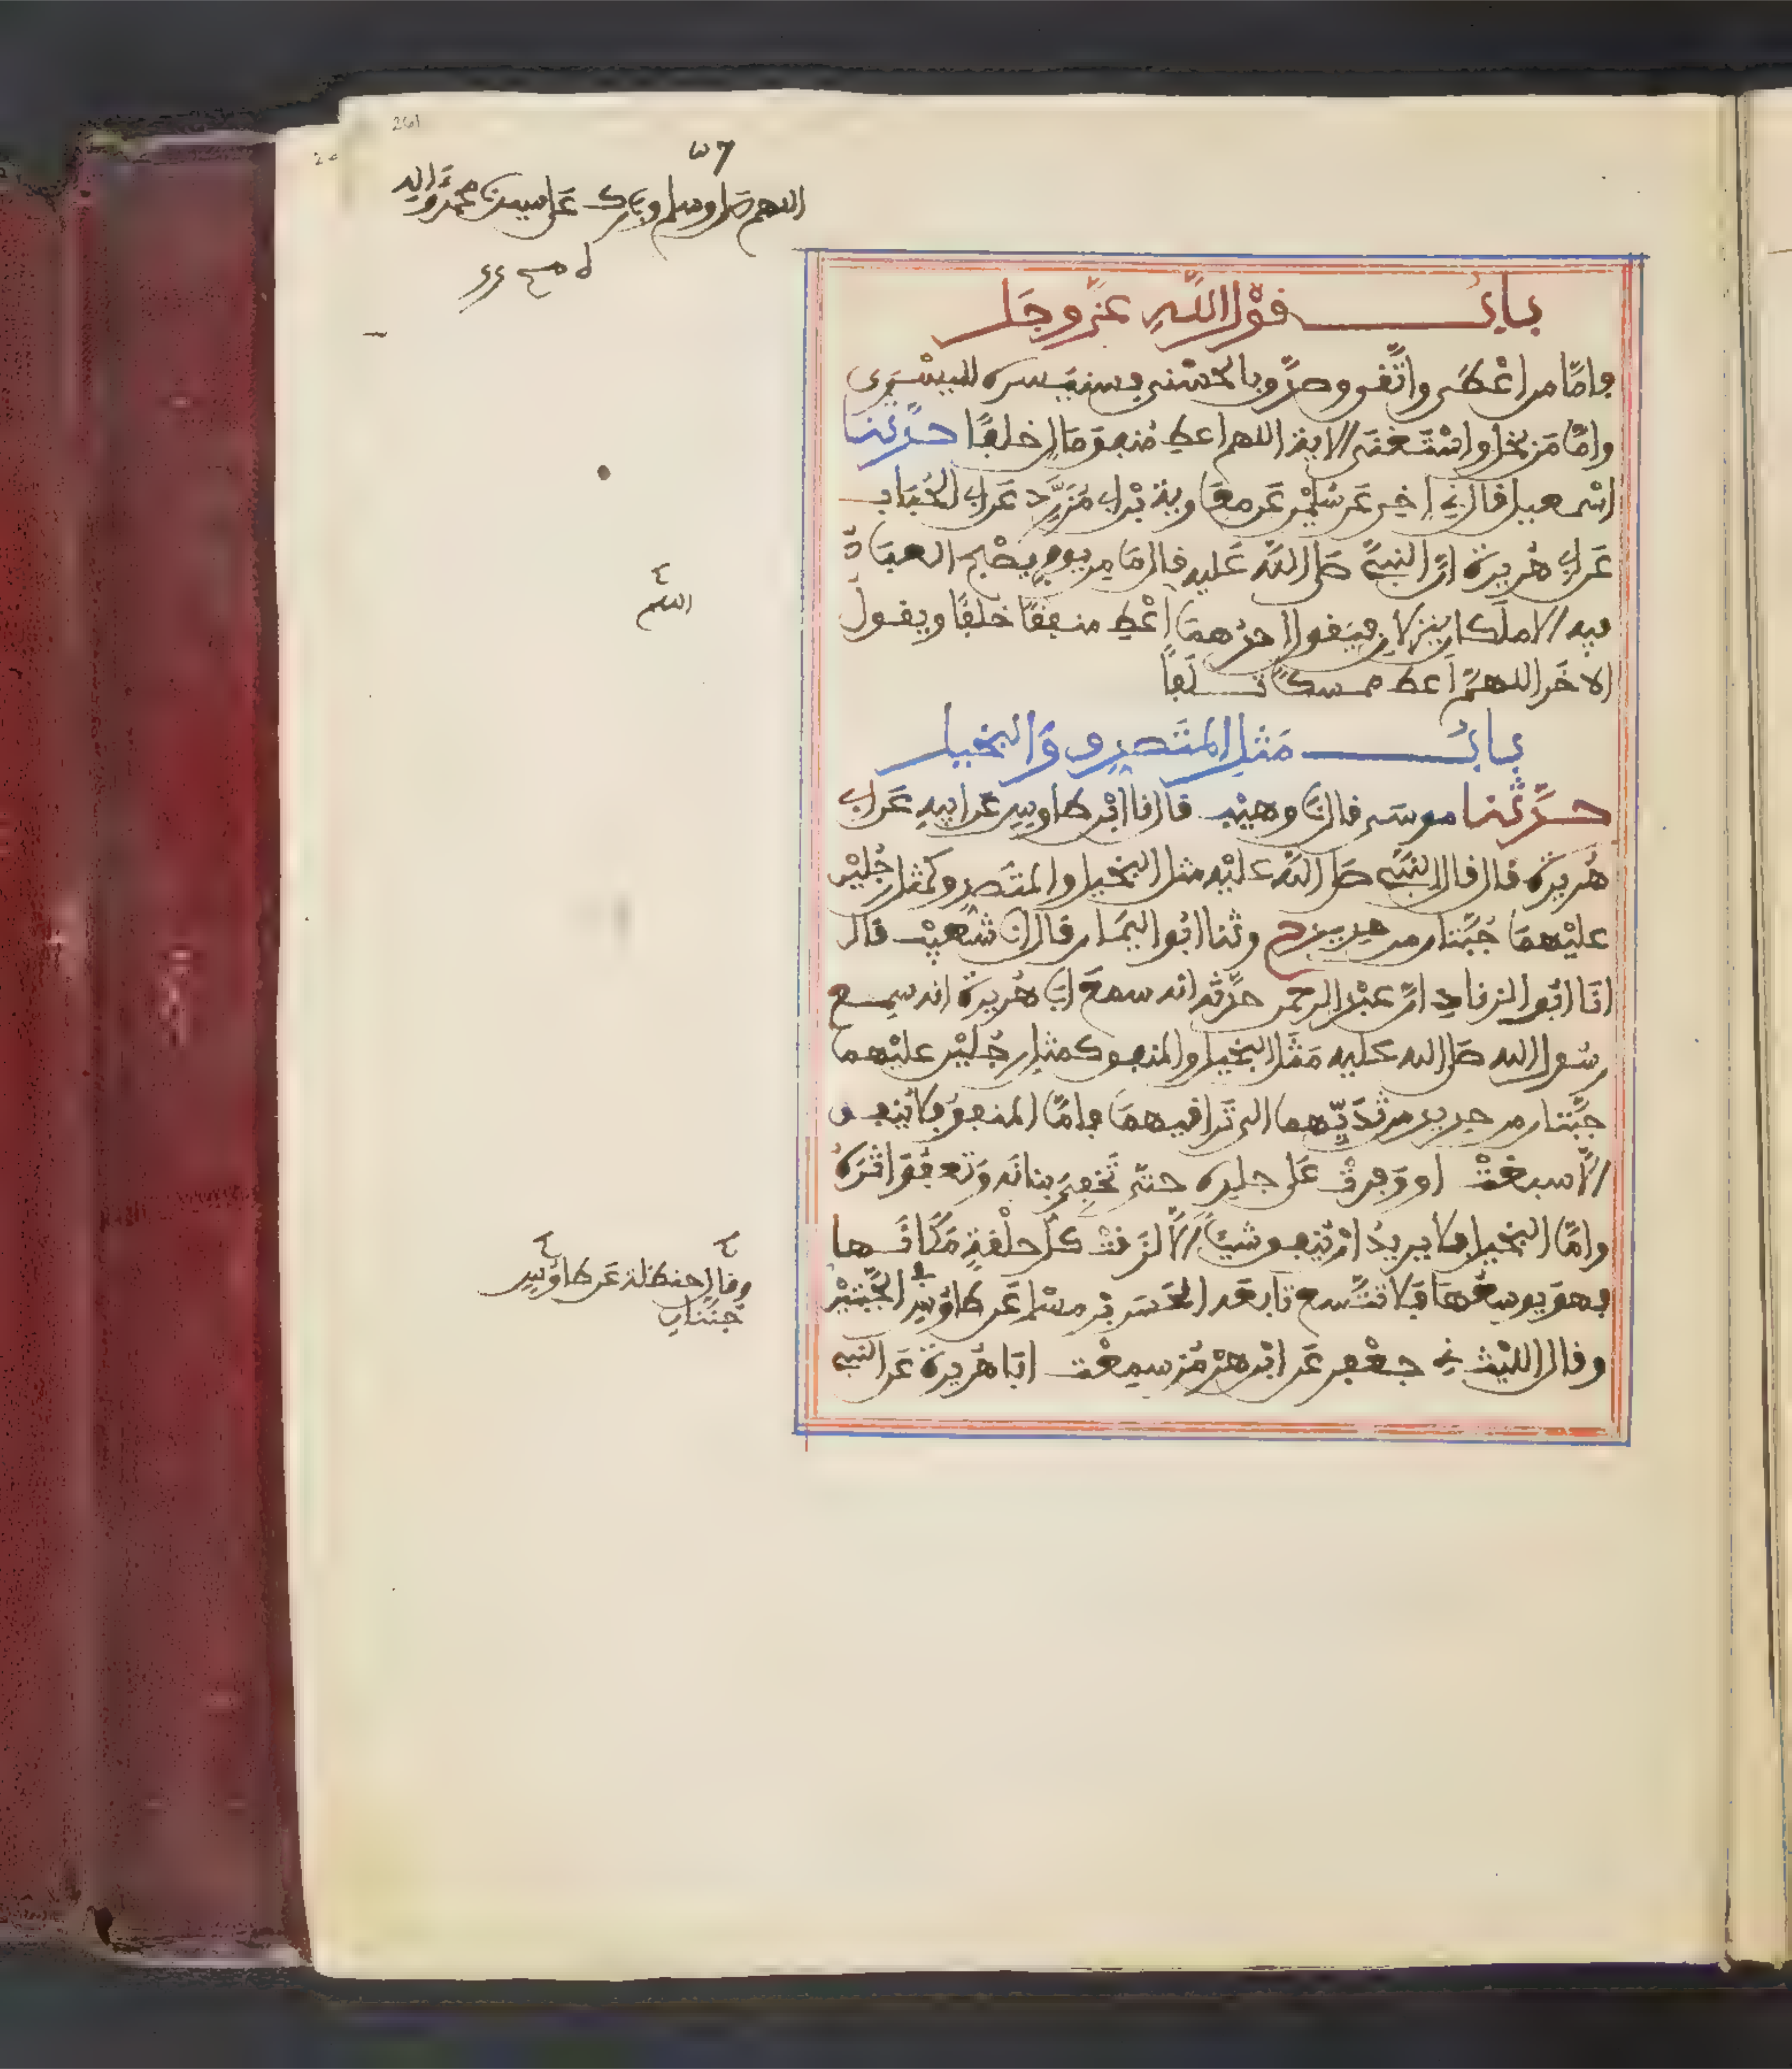 261
اللهم صل وسلم وبارك على سيدنا محمد وآله
باب قَوْل اللَّهِ عَزَّ وجَل
فامَّا من اعْطَى واتَّقى وصدَّق بالحُسْنى فسنيَسره لليسْرى
وامَّا مَن بخل واسْتَغنَى الاية اللهم اعط مُنفِق مَالٍ خلفًا حدَّثنا
اسْمعيل قال ني اخي عَن سُليْمٰن عَن معَاوية بْن ابي مُزَرِّد عَن ابي الحُبَاب
عَن ابي هُريرة انَّ النبيَّ صَلى اللَّه عَليه قال مَا مِن يومٍ يصْبح العبَادُ
فيه الا ملكان ينزلانِ فيَقول احدُهمَا اعْطِ منفِقًا خلفًا ويقولُ
الاخَر اللهمَّ اعط ممسكًا تلَفًا
اللهم
بابُ مَثَلِ المتَصدِق وَالبخيل
حدَّثنا موسَى قال نا وهيْب قال نا ابْن طاوسٍ عَن ابيهِ عَن ابي
هُريْرة قال قال النبيّ صَلى اللَّه عليْه مثل البخيل والمتَصدِق كمثل رجُليْن
عليْهمَا جُبَّتان من حديدٍ ح وثنا ابُوا اليمَان قال انا شعيْب قال
انَا ابُوا الزنادِ انَّ عبْد الرحمن حدَّثه انه سمعَ ابَا هُريرة انه سمع
رسُول الله صَلى الله عليه مَثَل البخيل والمنفق كمثل رجُليْن عليْهما
جبَّتان من حديد من ثدَيِّهما الى تَراقيهمَا فامَّا المنفقُ فلا يُنفق
الَّا سبغتْ او وَفرتْ عَلى جلده حتى تُخفِيَ بنانَه وَتعفُوَ اثَرَهُ
وامَّا البخيل فلا يريدُ انْ يُنفق شيئًا الَّا لزقتْ كلُّ حلْقةٍ مَكَانَها
فهوَ يوسِعُهَا فَلا تتَّسع تابعَه الحَسَن بْن مسْلم عَن طاوُسٍ في الجُبَّتيْن
وقال حنظلة عَن طاوُسٍ
جُنَّتانِ
وقال الليْث ني جعْفر عَن ابْن هرْمُز سمِعْت ابَا هُريرة عَن النبي